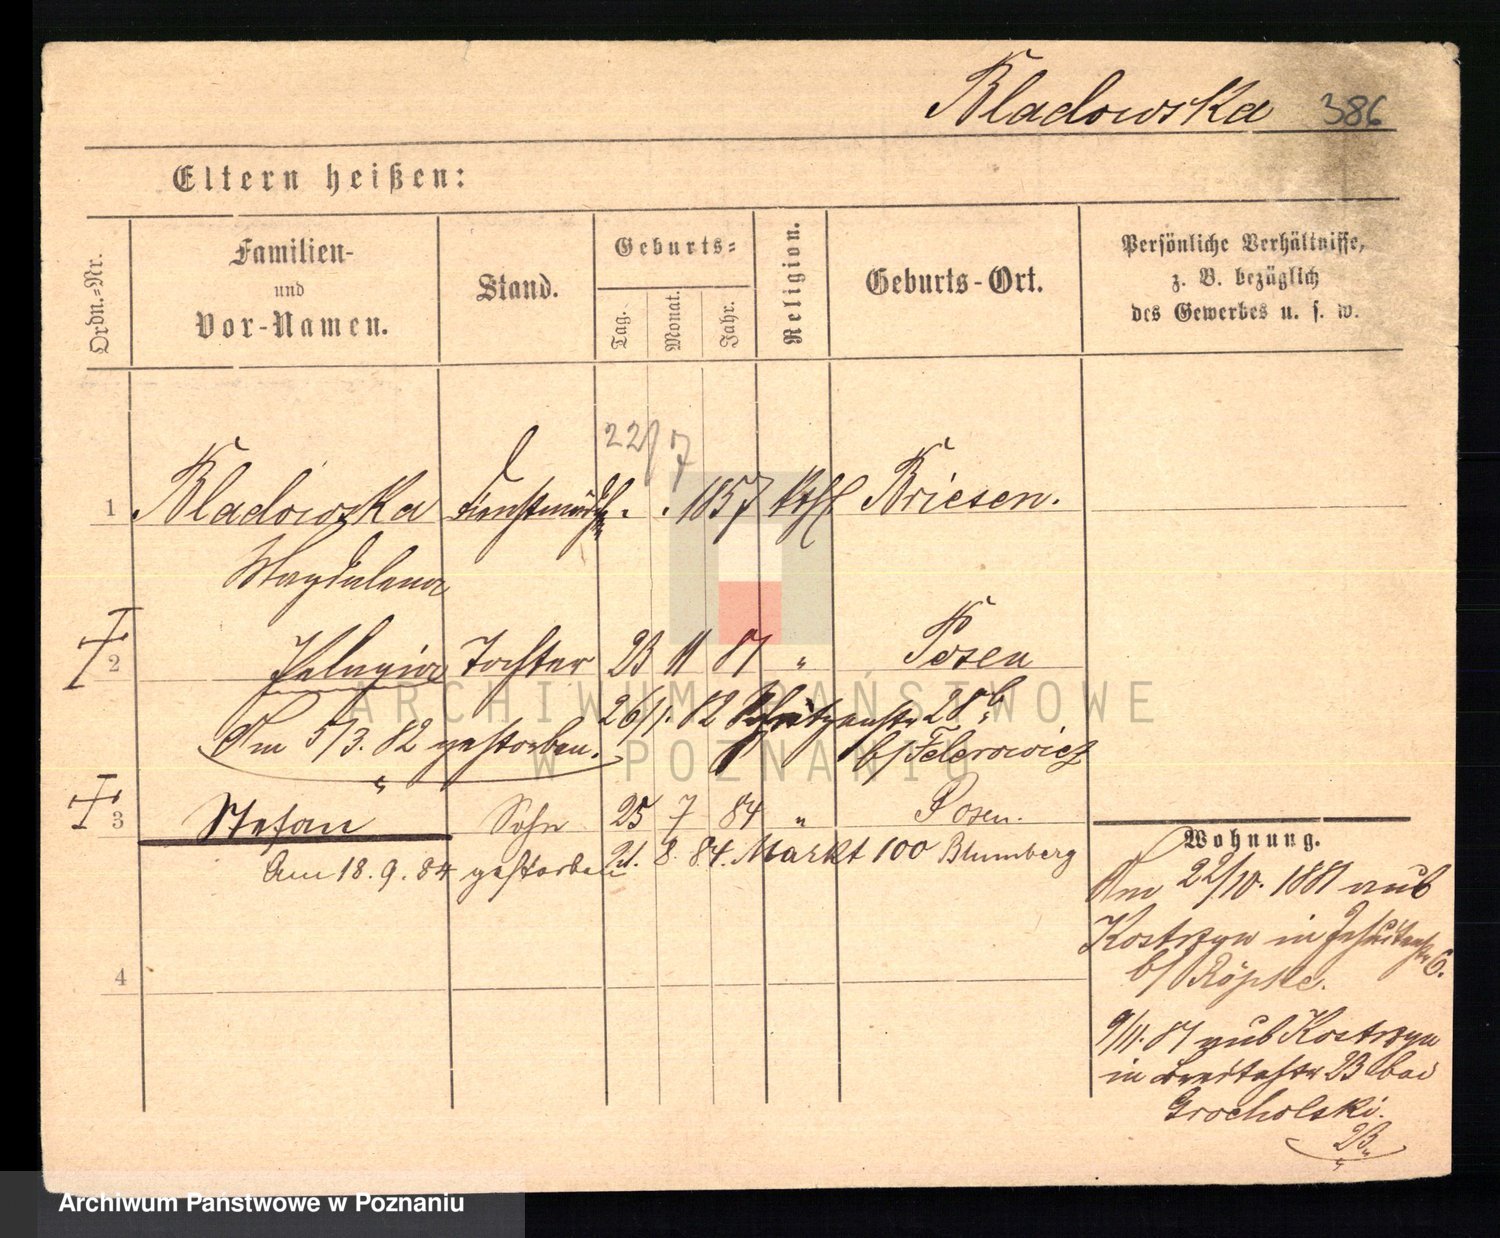 Bladowska 386
Eltern heißen:
Ordn.-Nr.
Familien-
und
Vor-Namen.
Stand.
Geburts-
Tag.
Monat.
Jahr.
Religion.
Geburts-Ort.
Persönliche Verhältnisse,
z. B. bezüglich
des Gewerbes u. s. w.
22/7
1 Bladowska Dienstmädch. 1857 kthl Briesen.
Magdalena
2 Pelagia Tochter 23 11 81 " Posen
26/1. 82 Schützenstr 28b
Am 5/3. 82 gestorben. b/ Felerowicz
3 Stefan Sohn 25 7 84 " Posen.
Am 18. 9. 84 gestorben 21. 8. 84. Markt 100 Blumberg
4
Wohnung.
Am 22/10. 1881 aus
Kostrzyn in Jesuitenstr 6.
b/ Röpke.
9/11. 81 aus Kostrzyn
in Breitestr 23 bei
Grocholski.
ARCHIWUM PAŃSTWOWE
W POZNANIU
Archiwum Państwowe w Poznaniu